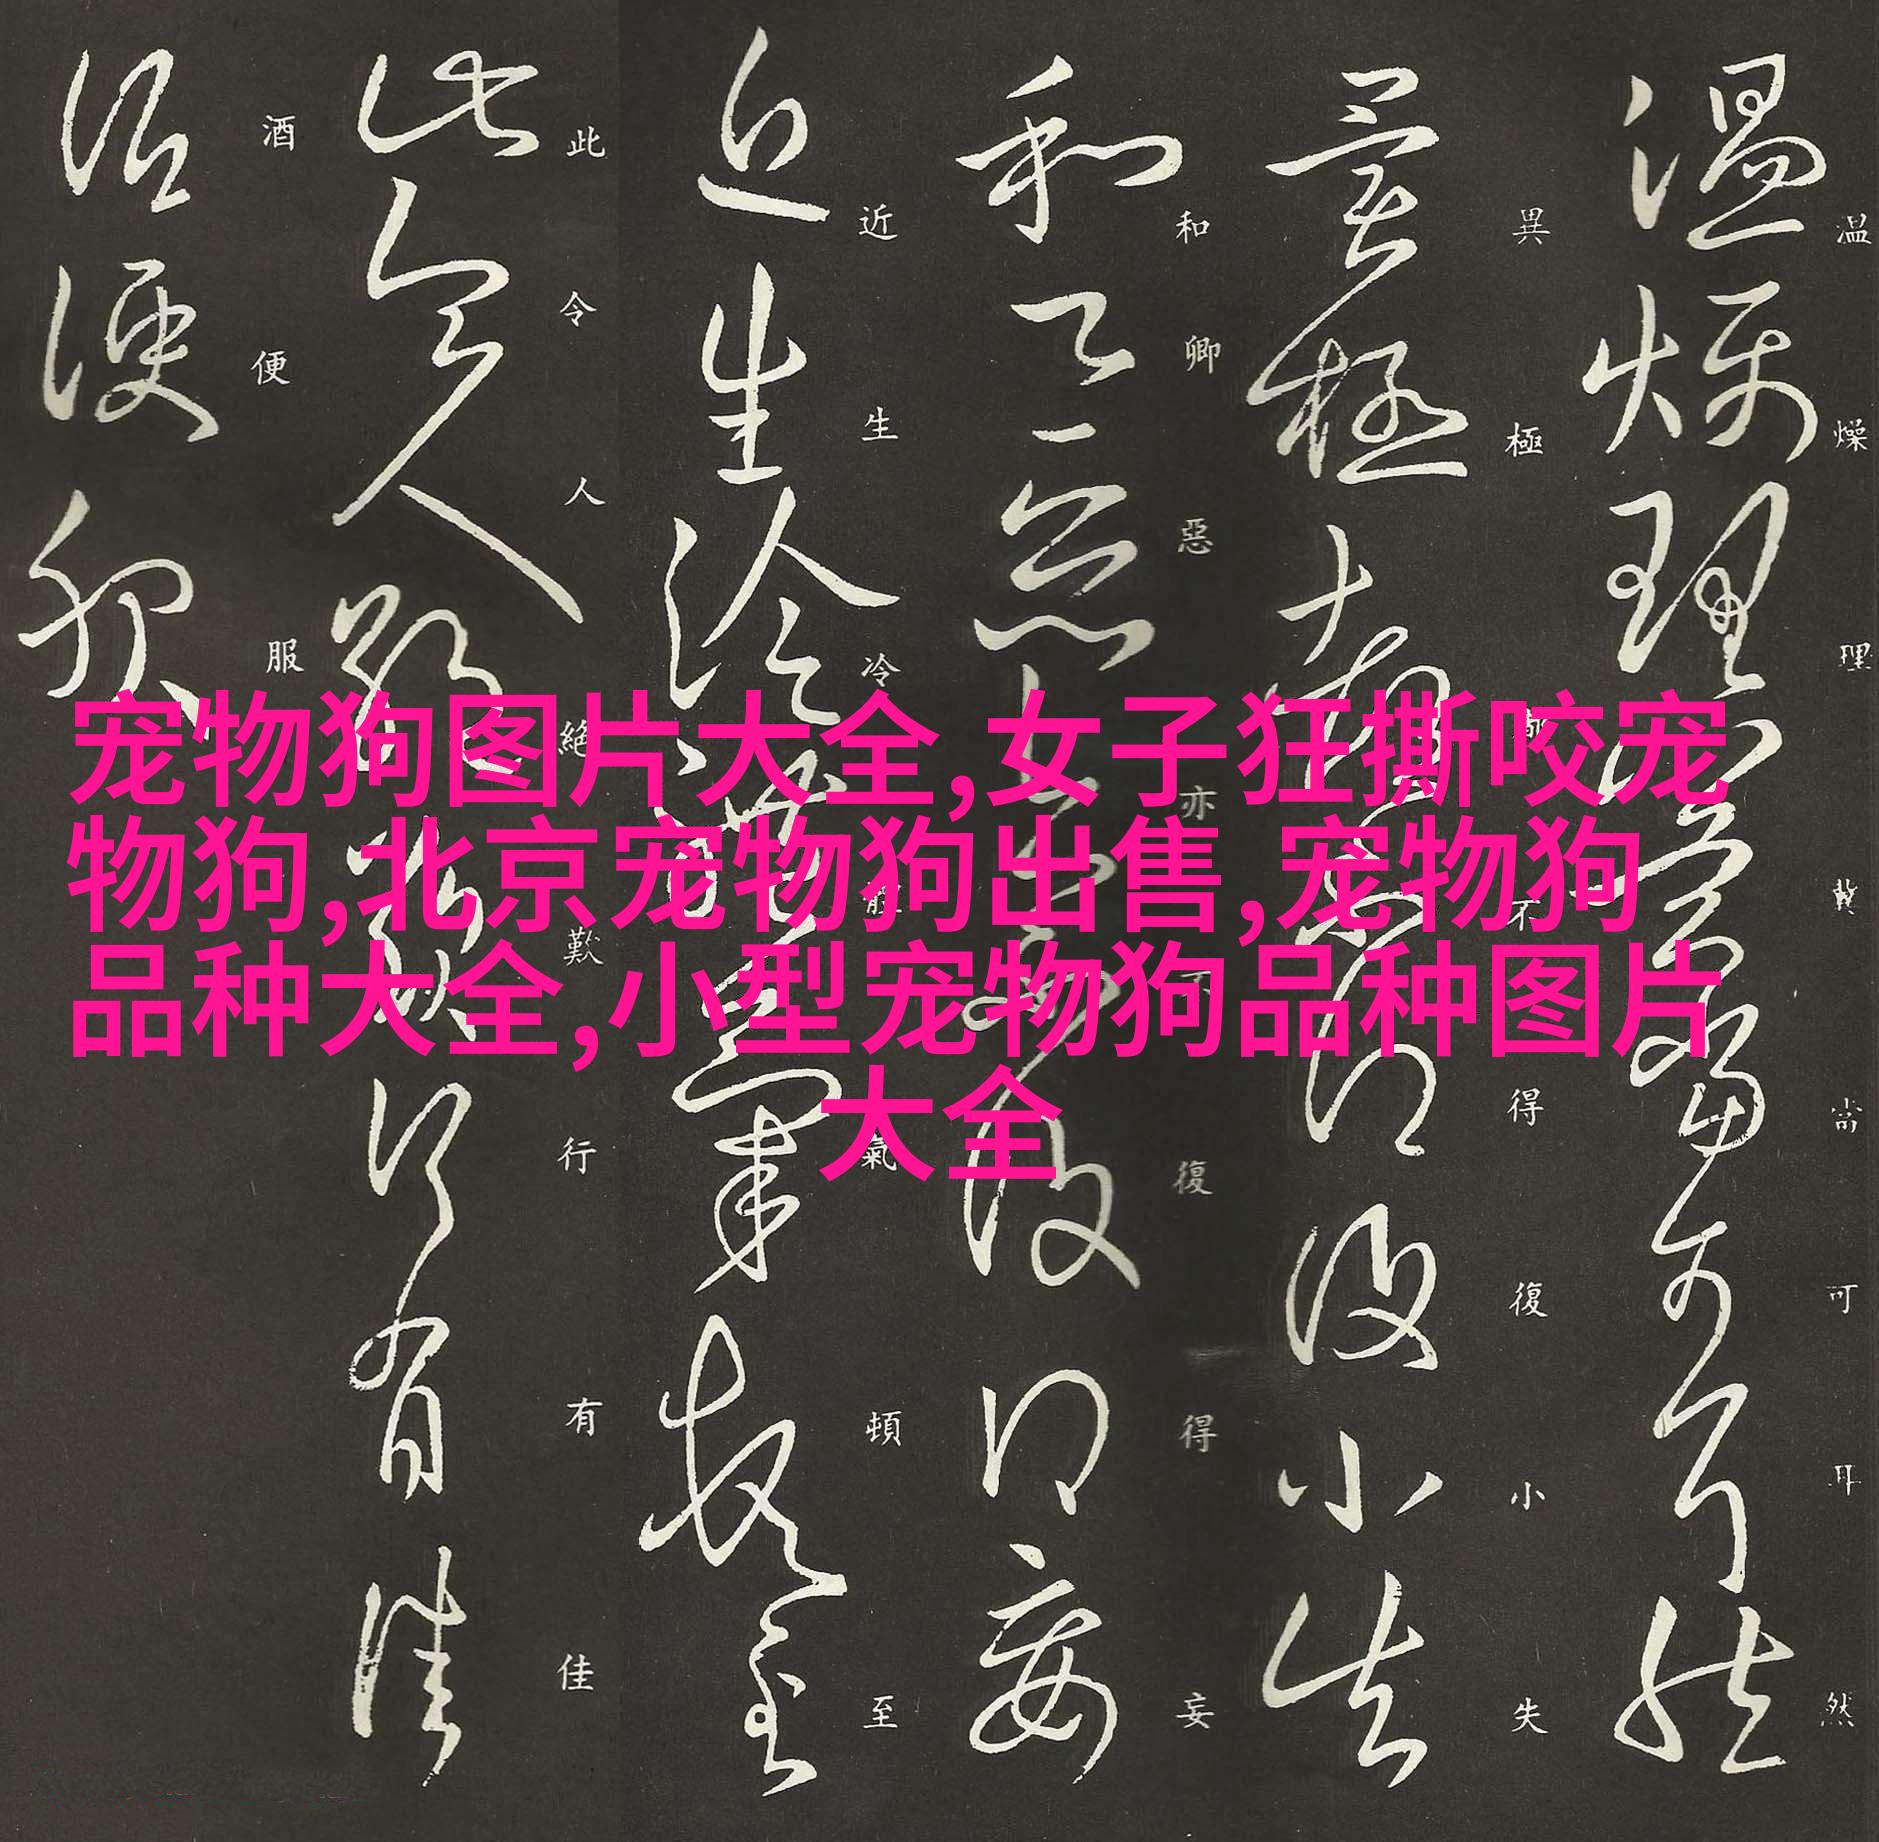 宠物狗图片大全,女子狂撕咬宠
物狗,北京宠物狗出售,宠物狗
品种大全,小型宠物狗品种图片
大全
温燥理冀當可耳然
異極不得復小失
和卿惡亦不復得妄
近生冷體氣頓至
此令人絕歎行有佳
酒便服